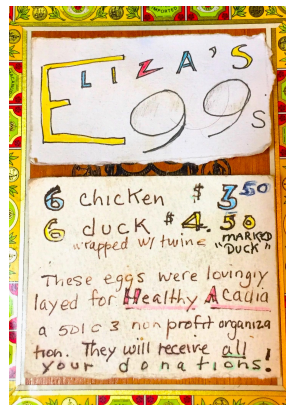 ELIZA'S
Eggs
6 chicken $ 3.50
6 duck $ 4.50
wrapped w/ twine MARKED
"DUCK"
These eggs were lovingly
layed for Healthy Acadia
a 501c3 nonprofit organiza
tion. They will receive all
your donations!